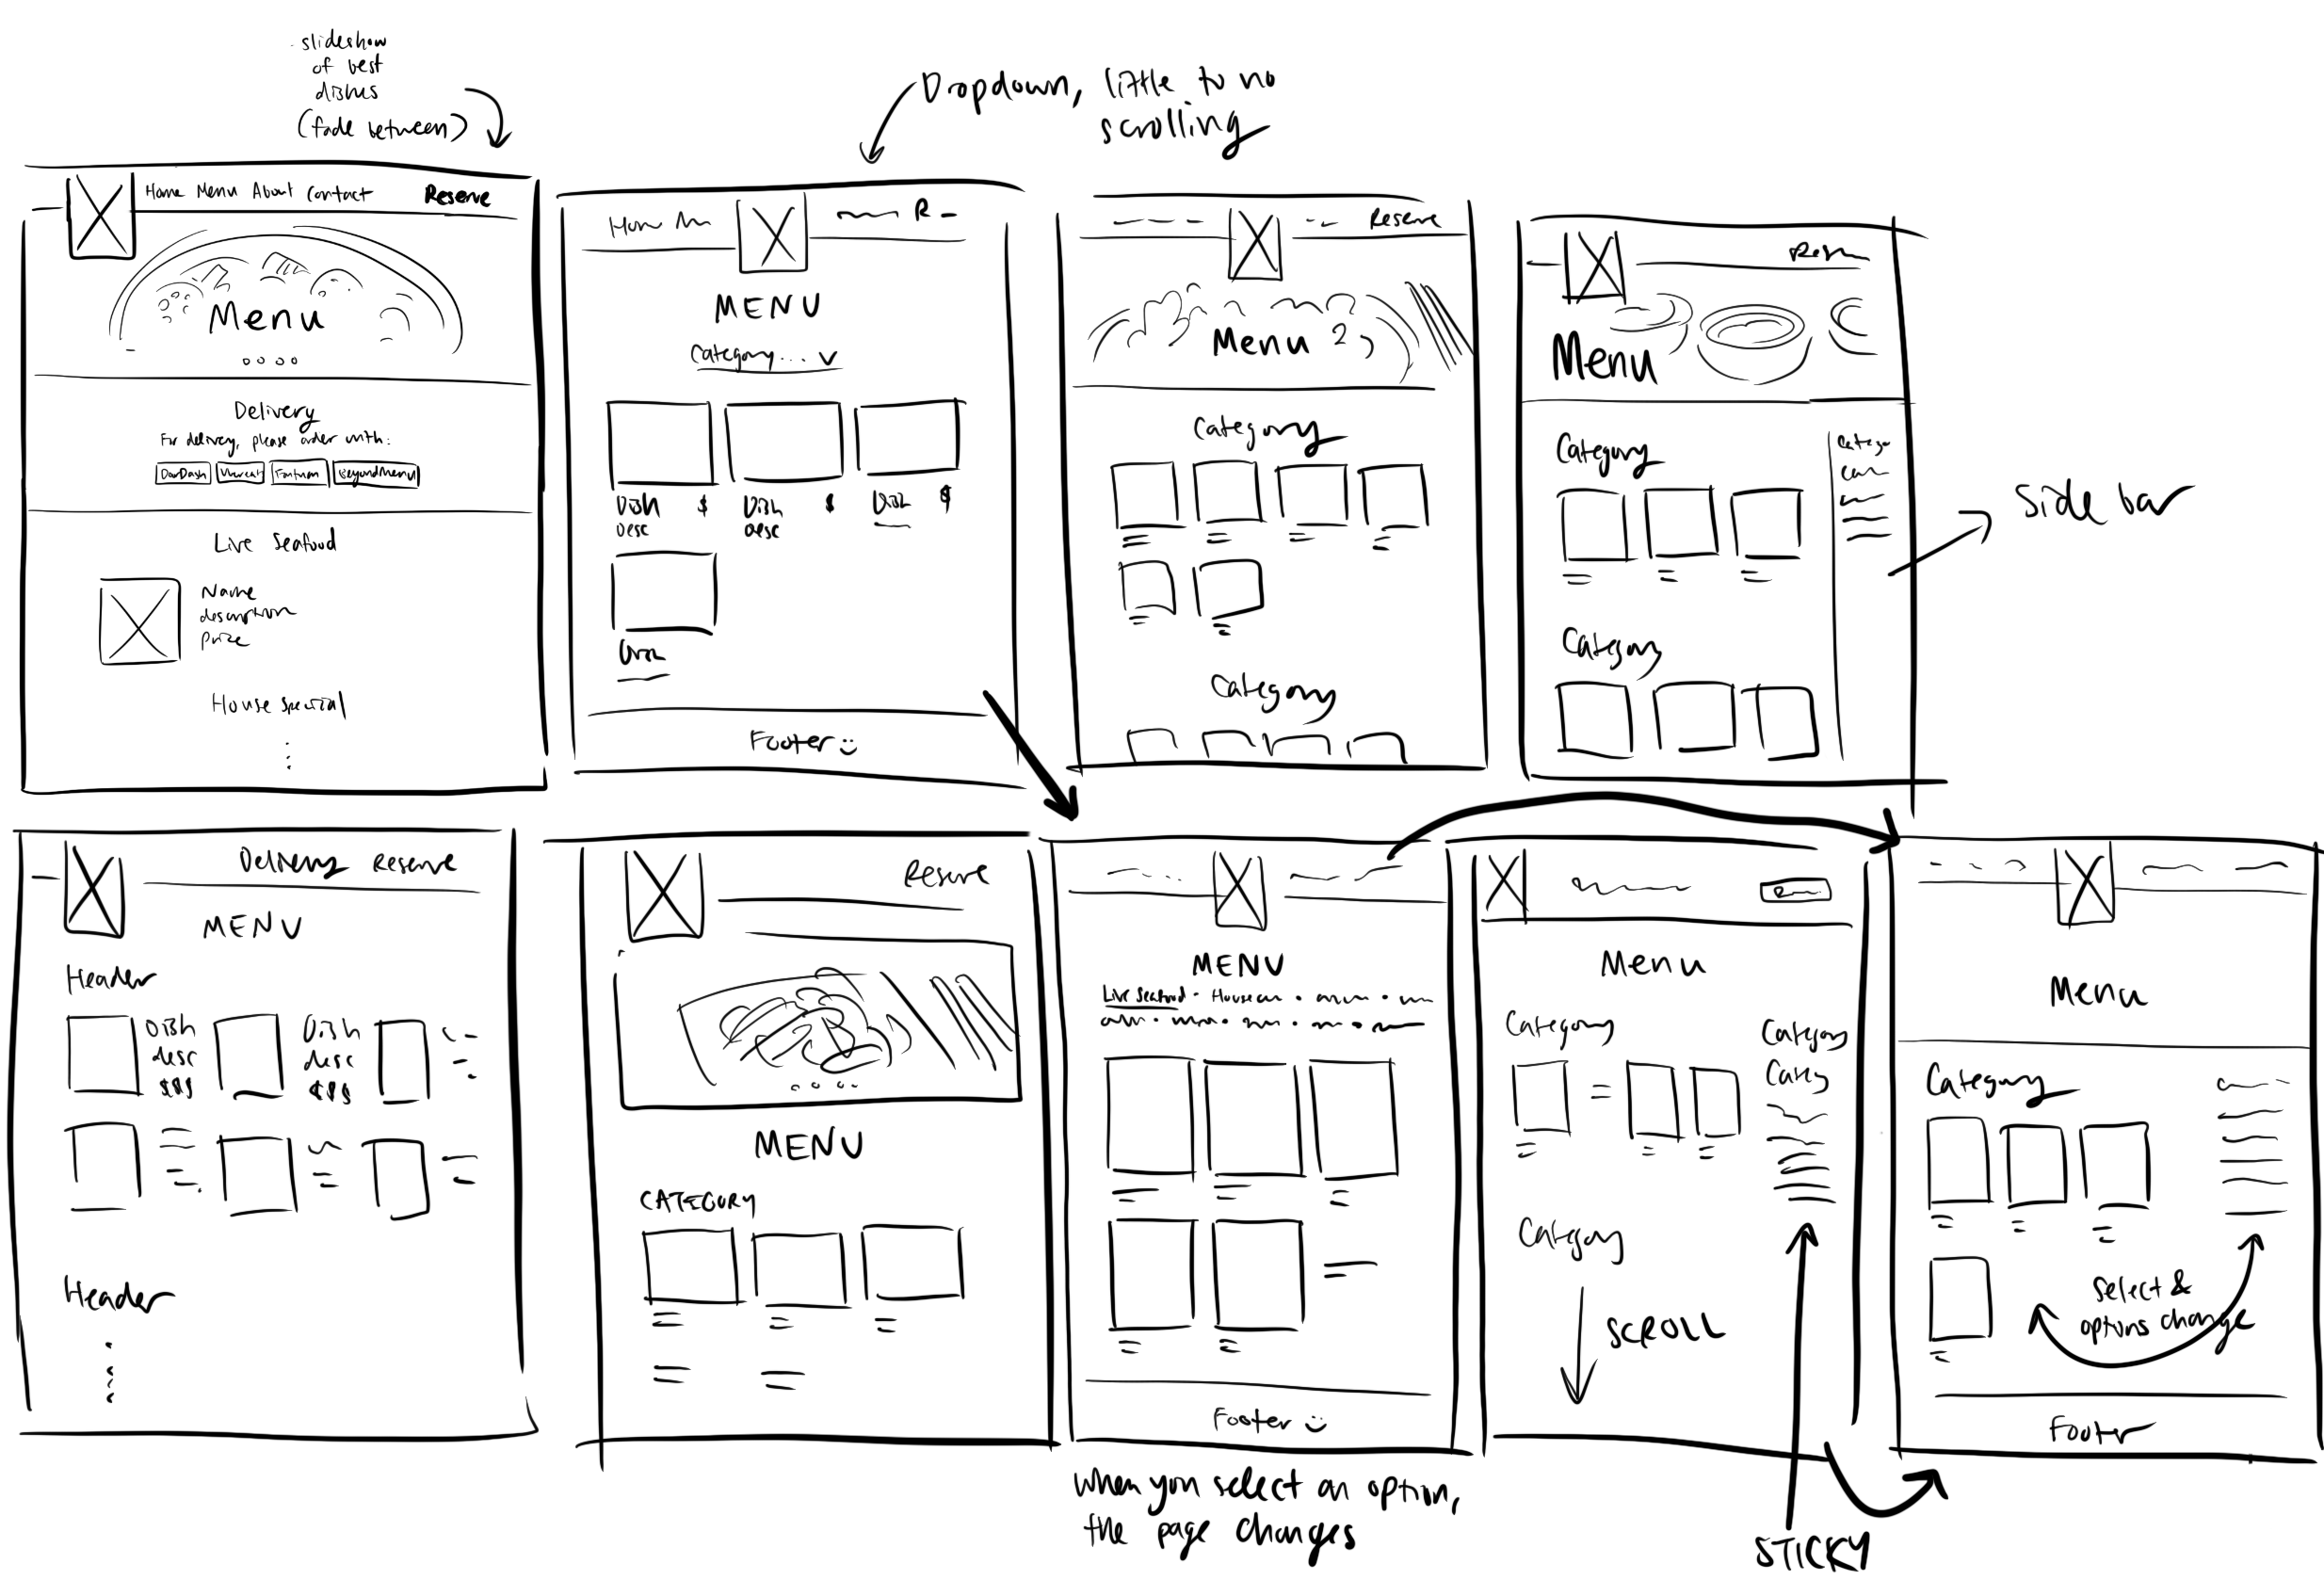 slideshow
of best
dishes
(fade between)
Dropdown, little to no
scrolling
Home Menu About Contact Reserve
Menu
Delivery
For delivery, please order with:
DoorDash
BeyondMenu
Live Seafood
Name
description
Price
House special
MENU
Category... v
Dish $
Desc
Dish $
Desc
Dish $
Dish
Footer
Reserve
Menu
Category
Category
Menu
Category
Category
Side bar
Delivery Reserve
MENU
Header
Dish
desc
$$$
Dish
desc
$$$
Header
Reserve
MENU
CATEGORY
MENU
Live Seafood
Footer
When you select an option,
the page changes
Menu
Category
Category
Category
SCROLL
STICKY
Menu
Category
Select &
options change
Footer